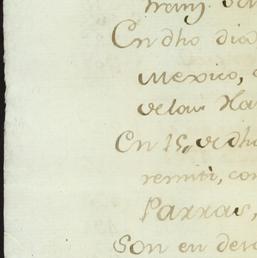 En dho dia
Mexico,
de las
En 15, de dho
remiti, con
Parras,
Son en